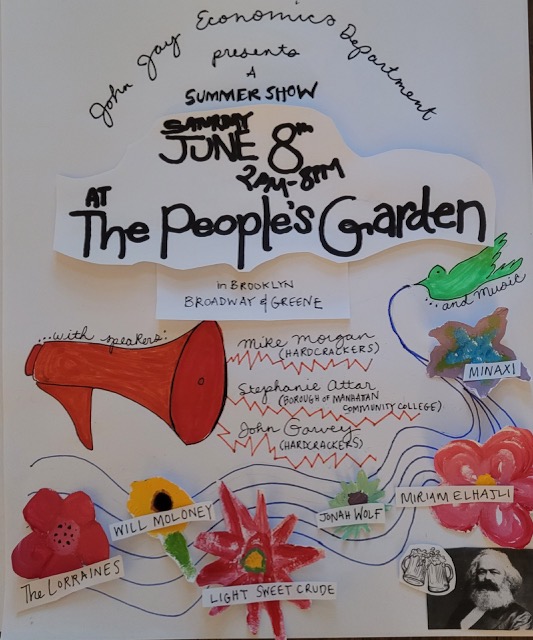 John Jay Economics Department
presents
A
SUMMER SHOW
SATURDAY
JUNE 8TH
2PM-8PM
AT
The People's Garden
in BROOKLYN
BROADWAY & GREENE
...with speakers:
Mike Morgan
(HARDCRACKERS)
Stephanie Attar
(BOROUGH OF MANHATTAN
COMMUNITY COLLEGE)
John Garvey
(HARDCRACKERS)
...and music
MINAXI
MIRIAM ELHAJLI
JONAH WOLF
WILL MOLONEY
The LORRAINES
LIGHT SWEET CRUDE